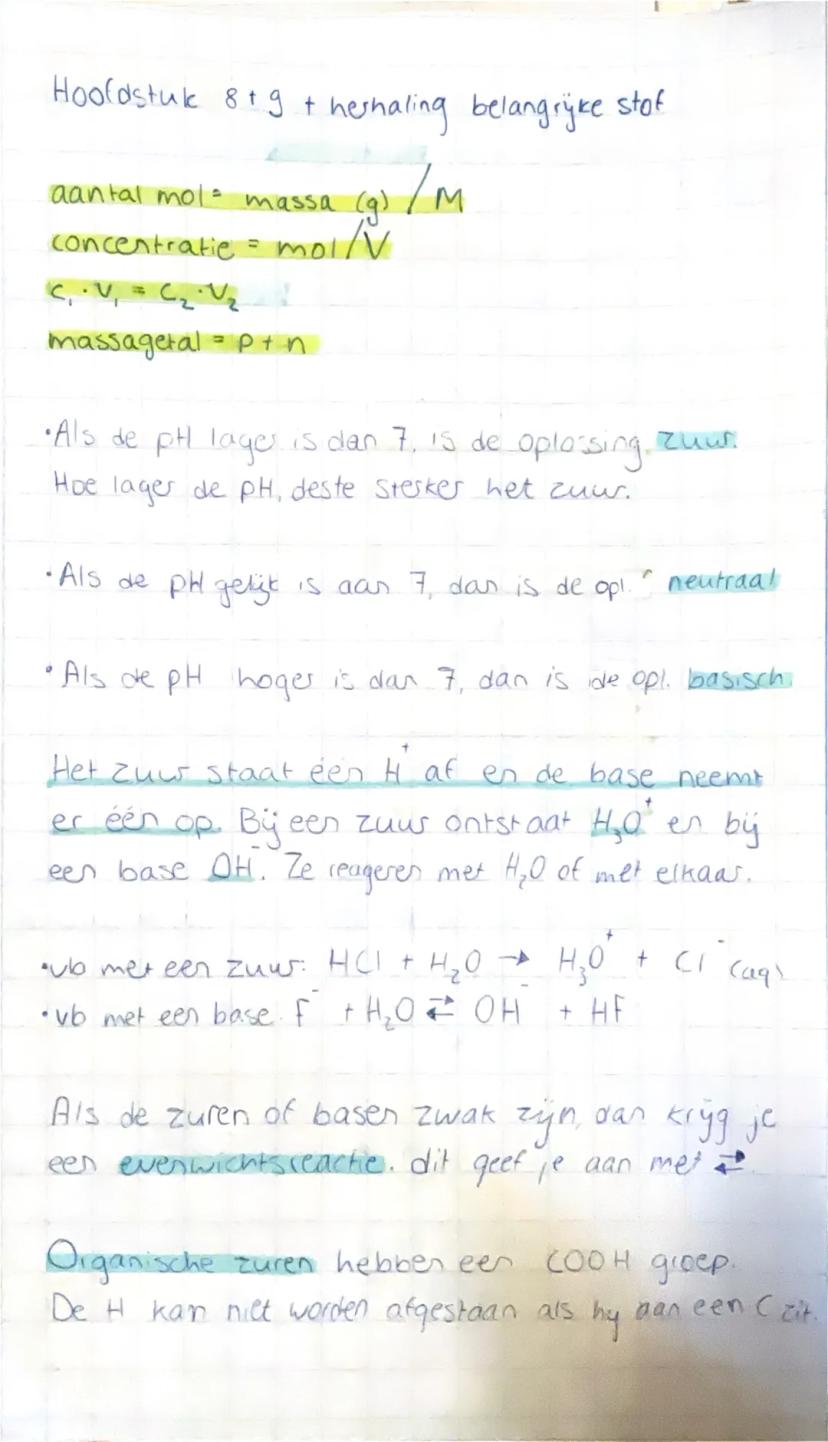 Hoofdstuk 8+9 + herhaling belangrijke stof
aantal mol = massa (g) / M
concentratie = mol/V
C₁ · V₁ = C₂ · V₂
massagetal = p + n
• Als de pH lager is dan 7, is de oplossing zuur.
Hoe lager de pH, deste sterker het zuur.
• Als de pH gelijk is aan 7, dan is de opl. neutraal
• Als de pH hoger is dan 7, dan is de opl. basisch.
Het zuur staat één H⁺ af en de base neemt
er één op. Bij een zuur ontstaat H₃O⁺ en bij
een base OH⁻. Ze reageren met H₂O of met elkaar.
• vb met een zuur: HCl + H₂O → H₃O⁺ + Cl⁻ (aq)
• vb met een base: F⁻ + H₂O ⇄ OH⁻ + HF
Als de zuren of basen zwak zijn, dan krijg je
een evenwichtsreactie. dit geef je aan met ⇄.
Organische zuren hebben een COOH groep.
De H kan niet worden afgestaan als hij aan een C zit.